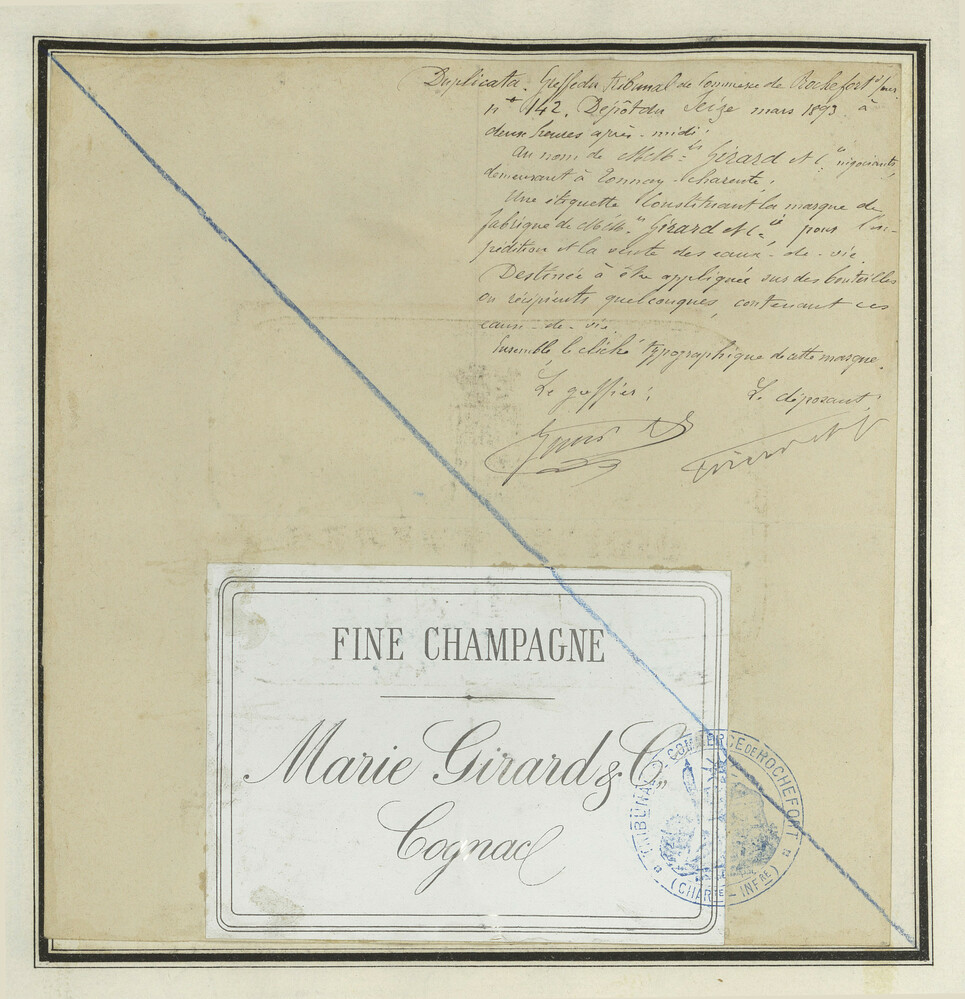 Duplicata. Greffe du Tribunal de Commerce de Rochefort s/mer
n° 142. Dépôt du Seize mars 1893 à
deux heures après-midi;
Au nom de MM.rs Girard et C.ie négociants,
demeurant à Tonnay-Charente,
Une étiquette Constituant la marque de
fabrique de MM.rs Girard et C.ie pour l'ex-
pédition et la vente des eaux-de-vie.
Destinée à être appliquée sur des bouteilles
ou récipients quelconques, contenant ces
eaux-de-vie.
Ensemble le cliché typographique de cette marque.
Le greffier: Le déposant:
FINE CHAMPAGNE
Marie Girard & C.
Cognac
TRIBUNAL D COMMERCE DE ROCHEFORT
(CHARTE-INFRE)